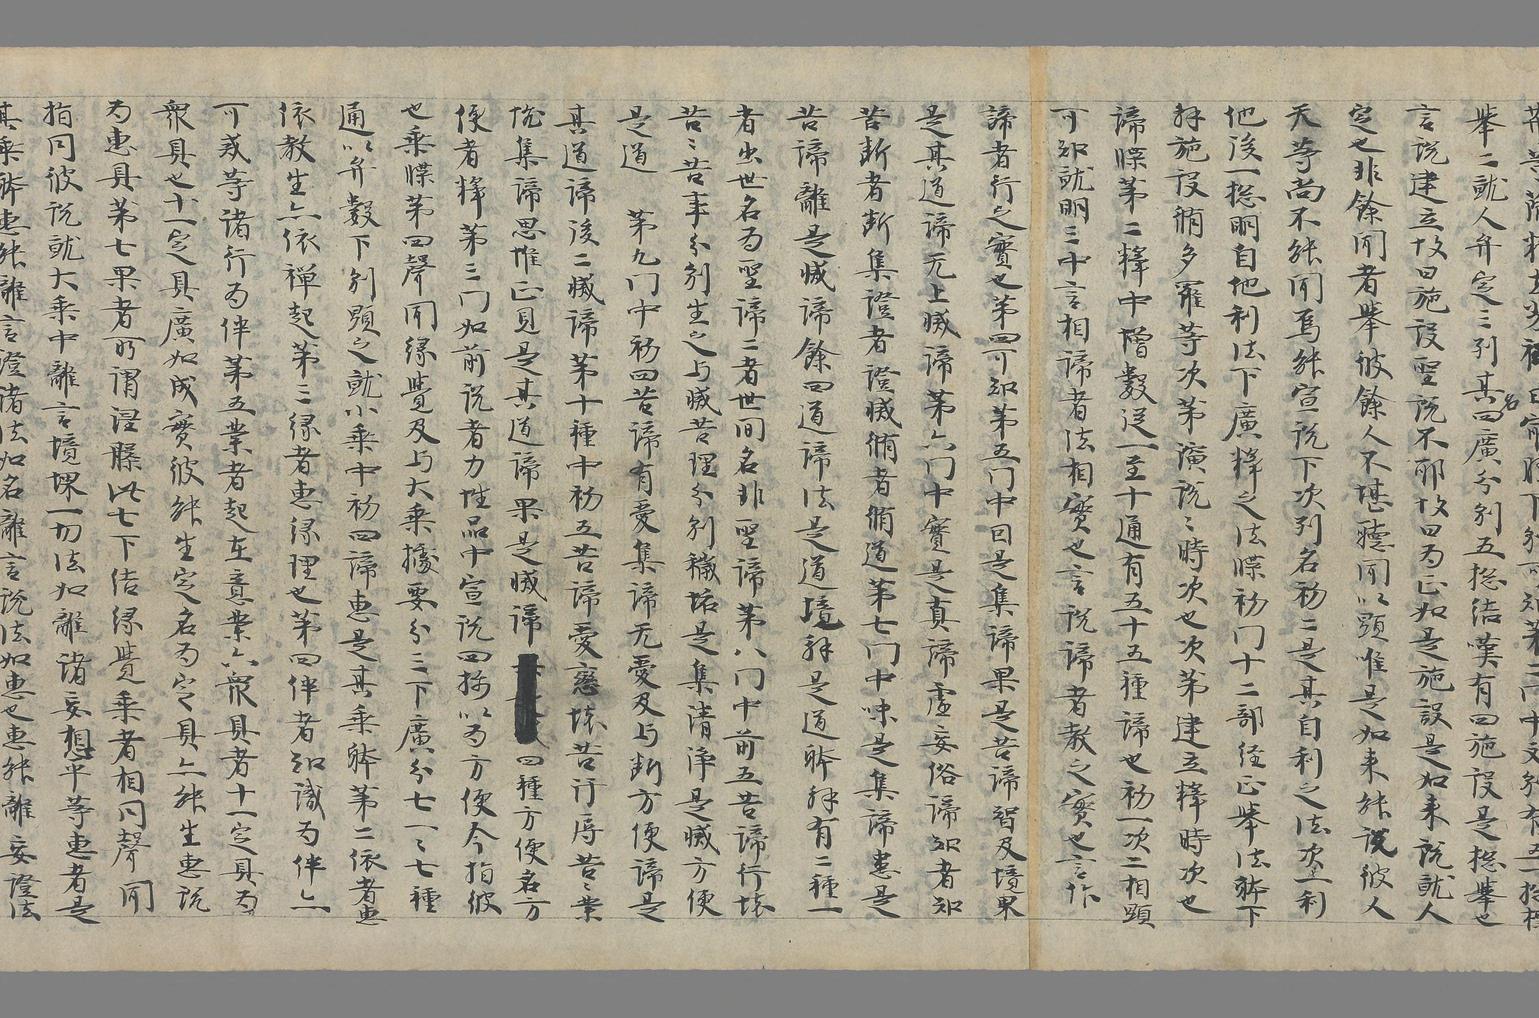 舉二就人弁定三列其名四廣分別五揔結嘆有四施設是揔舉也
言説建立故曰施設聖説不耶故曰为正如是施設是如来説就人
定也非餘聞者舉彼餘人不堪聴聞以顕唯是如来能説彼人
天等尚不能聞焉能宣説下次列名初二是其自利之法次二利
他後一揔明自他利法下廣釋之法牒初门十二部経正舉法躰下
釋施設脩多羅等次第演説〻時次也次第建立釋時次也
諦牒第二釋中增數送一至十通有五十五種諦也初一次二相顕
可知就明三中言相諦者法相實也言説諦者教之實也言作
諦者行之實也第四可知第五门中曰是集諦果是苦諦智及境果
是其道諦无上㓕諦第六门中實是真諦虚妄俗諦知者知
苦断者断集證者證㓕脩者脩道第七门中味是集諦患是
苦諦離是㓕諦餘四道諦法是道境解是道躰解有二種一
者出世名为聖諦二者世间名非聖諦第八门中前五苦諦行壊
苦〻苦事分別生之与㓕苦理分別穢垢是集清浄是㓕方便
是道　第九门中初四苦諦有愛集諦无愛及与断方便諦是
其道諦後二㓕諦第十種中初五苦諦愛戀壊苦行辱苦〻業
恼集諦思惟正見是其道諦果是㓕諦 四種方便名方
便者釋第三门如前説者力性品中宣説四揔以为方便今指彼
也乘牒第四聲聞縁覺及与大乘攄要分三下廣分七一〻七種
通以弁數下別顕之就小乘中初四諦恵是其乘躰第二依者恵
依教生亦依禅起第三縁者恵縁理也第四伴者知識为伴亦
可戒等諸行为伴第五業者起在意業六衆具者十一定具为
衆具也十一定具廣如成實彼能生定名为定具亦能生恵説
为恵具第七果者所謂涅槃此七下结縁覺乘者相同聲聞
指同彼説就大乘中離言境堺一切法如離諸妄想平等恵者是
其乘躰恵能離言證諸法如名離言説法如恵也恵能離妄證法